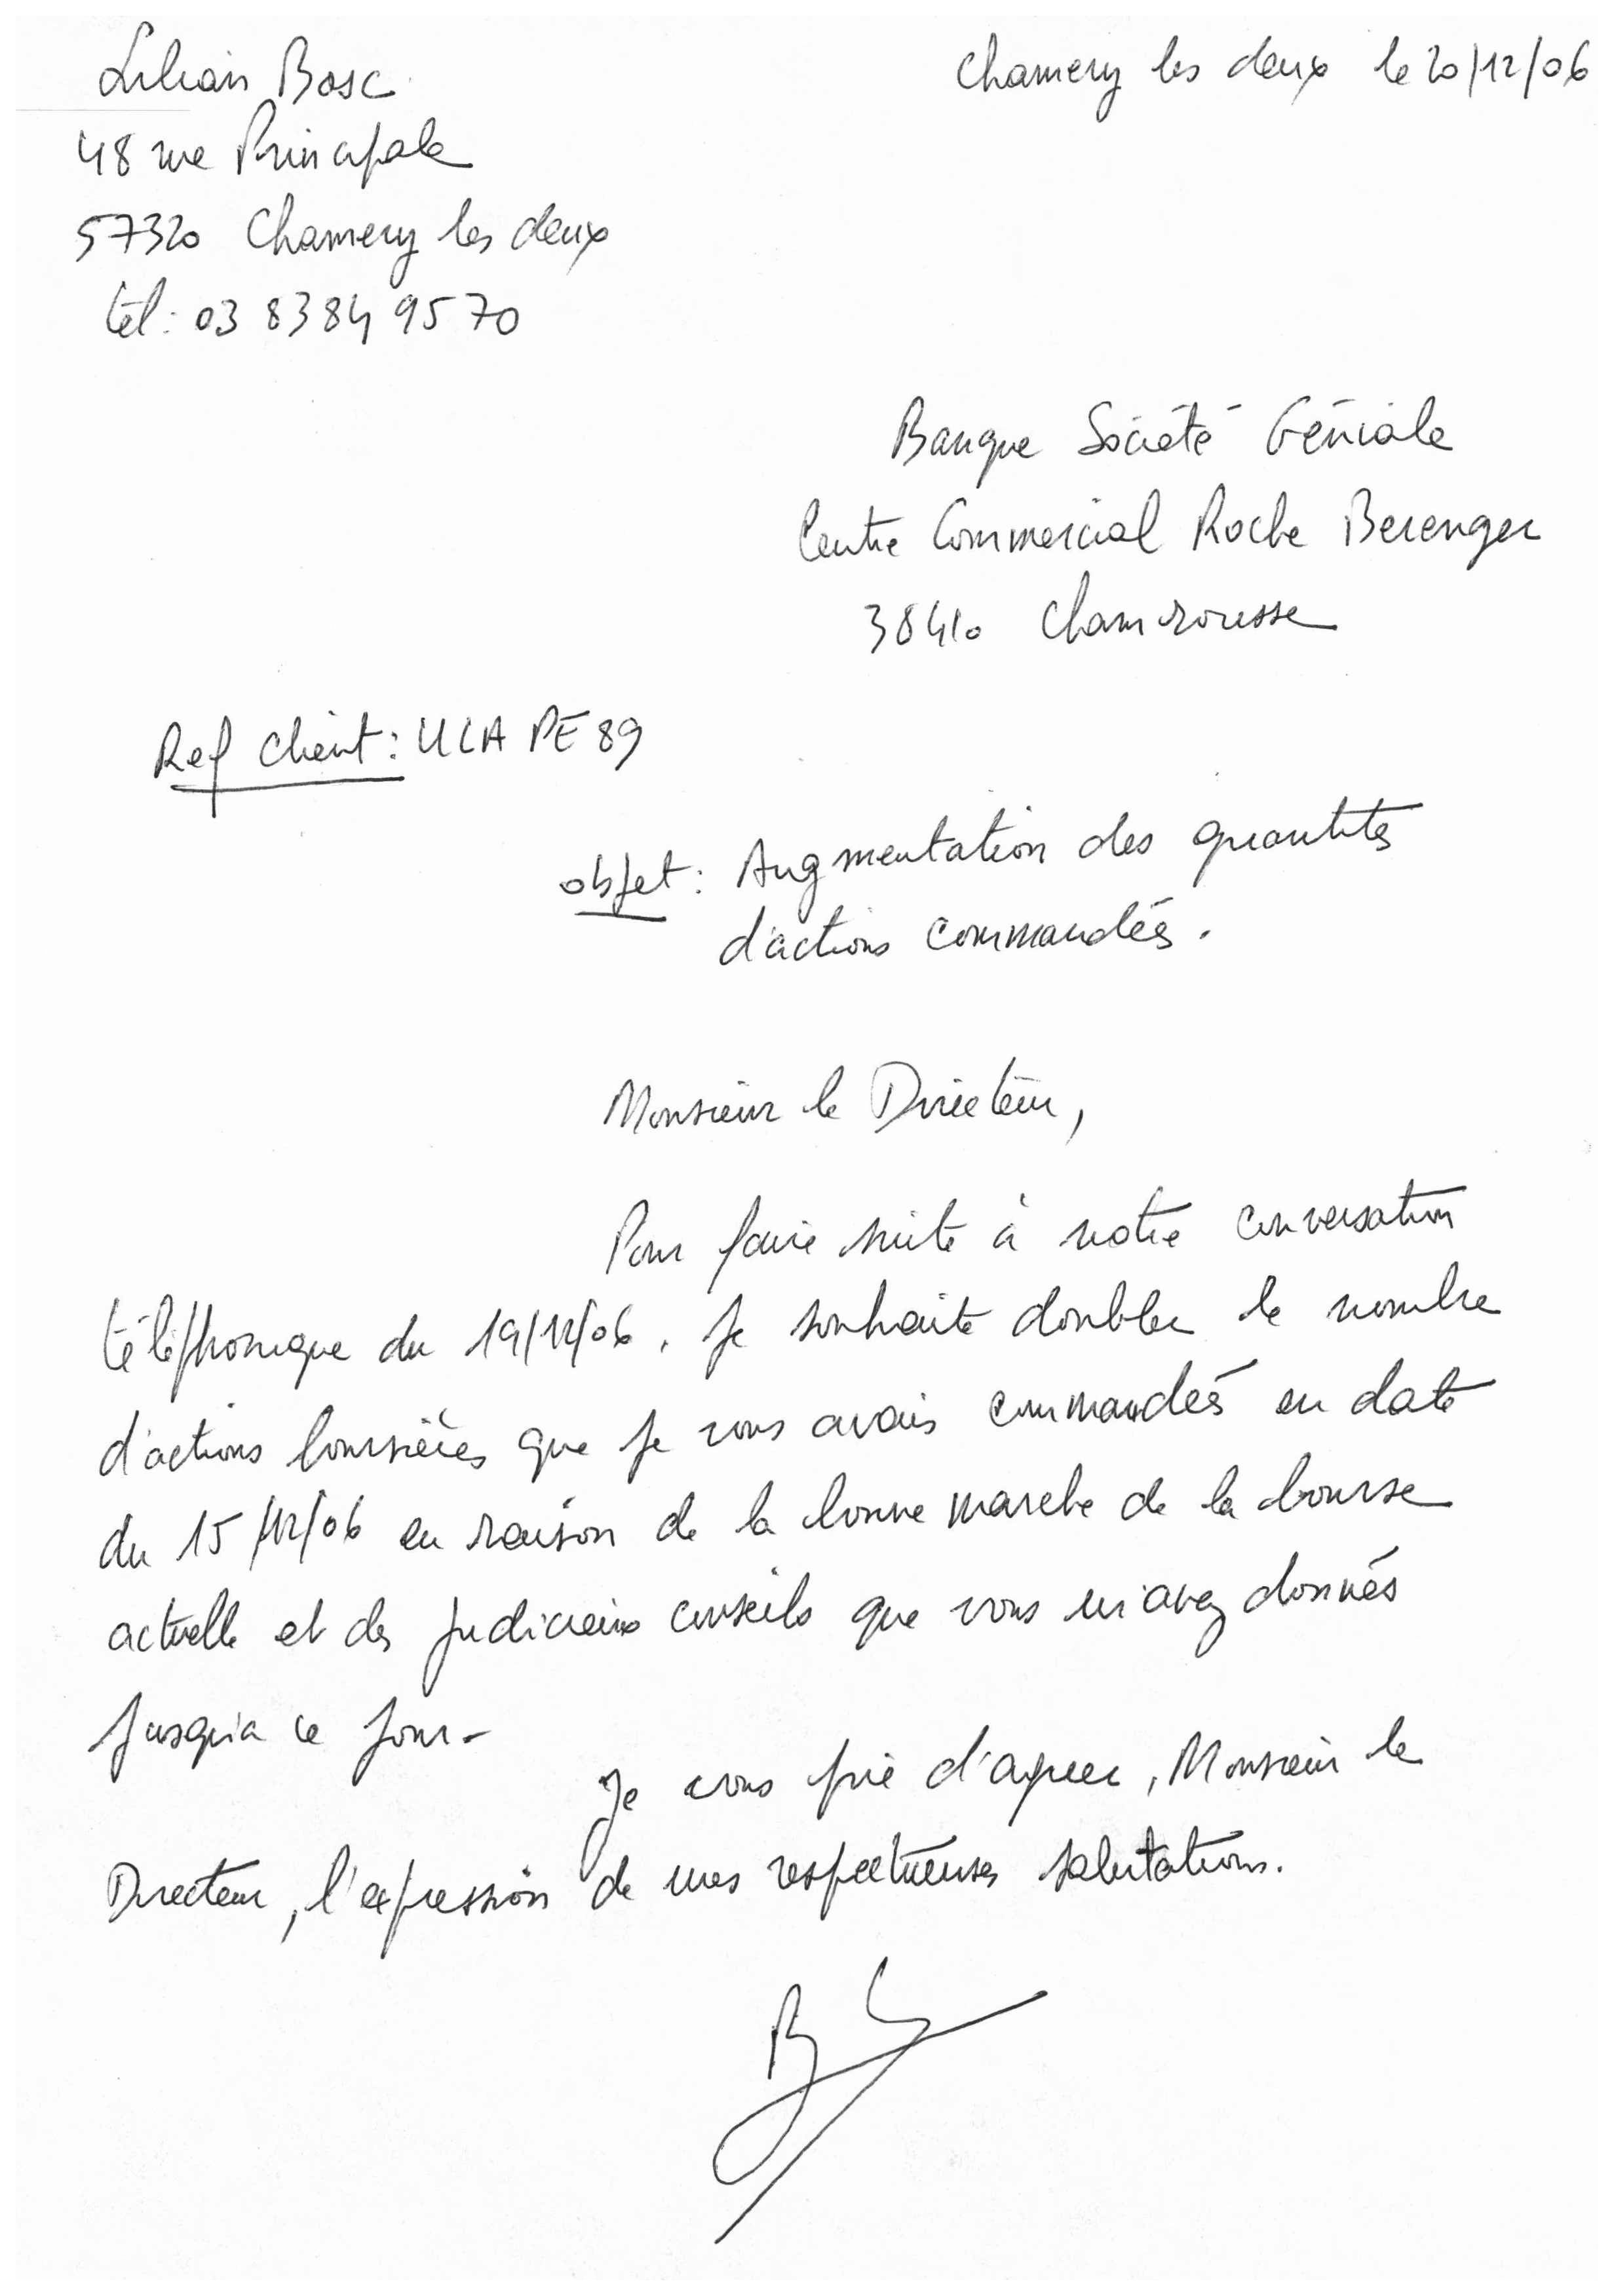 Lilian Bosc
Chamery les deux le 20/12/06
48 rue Principale
57320 Chamery les deux
tél: 03 83 84 95 70
Banque Société Géniale
Centre Commercial Roche Berenger
38410 Chamrousse
Ref client: ULA PE 89
objet: Augmentation des quantités
d'actions commandées.
Monsieur le Directeur,
Pour faire suite à notre conversation
téléphonique du 19/12/06. Je souhaite doubler le nombre
d'actions boursières que je vous avais commandées en date
du 15/12/06 en raison de la bonne marche de la bourse
actuelle et des judicieux conseils que vous m'avez donnés
jusqu'a ce jour-
Je vous prie d'agréer, Monsieur le
Directeur, l'expression de mes respectueuses salutations.